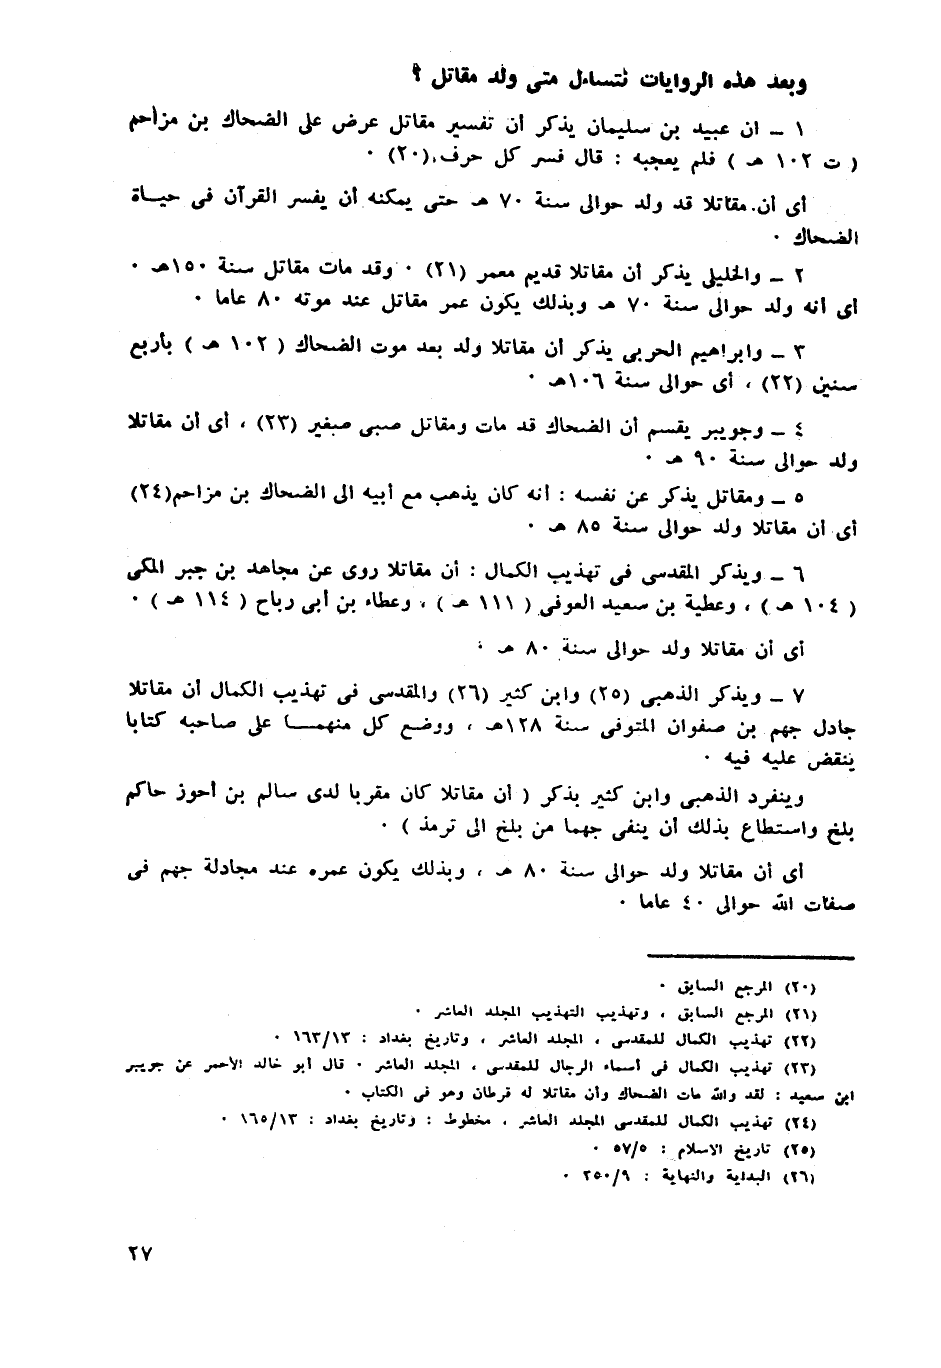 وبعد هذه الروايات نتساءل متى ولد مقاتل ؟
١ ــ ان عبيد بن سليمان يذكر أن تفسير مقاتل عرض على الضحاك بن مزاحم
( ت ١٠٢ هـ ) فلم يعجبه : قال فسر كل حرف (٢٠) ٠
أى أن مقاتلا قد ولد حوالى سنة ٧٠ هـ حتى يمكنه أن يفسر القرآن فى حيــاة
الضحاك ٠
٢ ــ والخليلى يذكر أن مقاتلا قديم معمر (٢١) ٠ وقد مات مقاتل سنة ١٥٠هـ ٠
أى أنه ولد حوالى سنة ٧٠ هـ وبذلك يكون عمر مقاتل عند موته ٨٠ عاما ٠
٣ ــ وابراهيم الحربى يذكر أن مقاتلا ولد بعد موت الضحاك ( ١٠٢ هـ ) بأربع
سنين (٢٢) ، أى حوالى سنة ١٠٦هـ ٠
٤ ــ وجويبر يقسم أن الضحاك قد مات ومقاتل صبى صغير (٢٣) ، أى أن مقاتلا
ولد حوالى سنة ٩٠ هـ ٠
٥ ــ ومقاتل يذكر عن نفسه : أنه كان يذهب مع أبيه الى الضحاك بن مزاحم(٢٤)
أى أن مقاتلا ولد حوالى سنة ٨٥ هـ ٠
٦ ــ ويذكر المقدسى فى تهذيب الكمال : أن مقاتلا روى عن مجاهد بن جبر المكى
( ١٠٤ هـ ) ، وعطية بن سعيد العوفى ( ١١١ هـ ) ، وعطاء بن أبى رباح ( ١١٤ هـ ) ٠
أى أن مقاتلا ولد حوالى سنة ٨٠ هـ ٠
٧ ــ ويذكر الذهبى (٢٥) وابن كثير (٢٦) والمقدسى فى تهذيب الكمال أن مقاتلا
جادل جهم بن صفوان المتوفى سنة ١٢٨هـ ، ووضع كل منهمــا على صاحبه كتابا
ينقض عليه فيه ٠
وينفرد الذهبى وابن كثير بذكر ( أن مقاتلا كان مقربا لدى سالم بن أحوز حاكم
بلخ واستطاع بذلك أن ينفى جهما من بلخ الى ترمذ ) ٠
أى أن مقاتلا ولد حوالى سنة ٨٠ هـ ، وبذلك يكون عمره عند مجادلة جهم فى
صفات الله حوالى ٤٠ عاما ٠
(٢٠) المرجع السابق ٠
(٢١) المرجع السابق ، وتهذيب التهذيب المجلد العاشر ٠
(٢٢) تهذيب الكمال للمقدسى ، المجلد العاشر ، وتاريخ بغداد : ١٦٣/١٣ ٠
(٢٣) تهذيب الكمال فى أسماء الرجال للمقدسى ، المجلد العاشر ٠ قال أبو خالد الأحمر عن جويبر
ابن سعيد : لقد والله مات الضحاك وأن مقاتلا له قرطان وهو فى الكتاب ٠
(٢٤) تهذيب الكمال للمقدسى المجلد العاشر ، مخطوط : وتاريخ بغداد : ١٦٥/١٣ ٠
(٢٥) تاريخ الاسلام : ٥٧/٥ ٠
(٢٦) البداية والنهاية : ٢٥٠/٩ ٠
٢٧